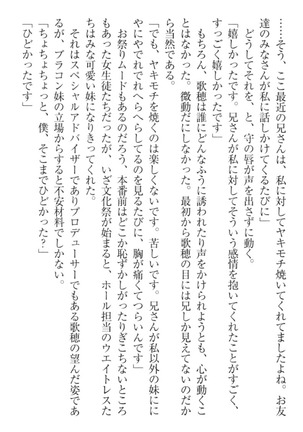 「……そう、ここ最近の兄さんは、私に対してヤキモチ焼いてくれてましたよね。お友
達のみなさんが私に話しかけてくるたびに」
どうしてそれを、と、守の唇が声を出さずに動く。
「嬉しかったです。兄さんが私に対してそういう感情を抱いてくれたことがすごく、
すっごく嬉しかったです」
もちろん、歌穂は誰にどんなふうに誘われたり声をかけられようとも、心が動くこ
とはなかった。微動だにしなかった。最初から歌穂の目には兄しか見えてないのだか
ら当然である。
「でも、ヤキモチを焼くのは楽しくないです。苦しいです。兄さんが私以外の妹に
にやにやでれでれへらへらしてるのを見るたびに、胸が痛くてつらいんです」
お祭りムードもあるのだろう、本番前はどこか恥ずかしがったりぎこちないところ
もあった女生徒たちだったが、いざ文化祭が始まると、ホール担当のウエイトレスた
ちはみな可愛い妹になりきってくれた。
それはスペシャルアドバイザーでありプロデューサーでもある歌穂の望んだ姿であ
るが、ブラコン妹の立場からすると不安材料でしかない。
「ちょちょちょっと、僕、そこまでひどかった？」
「ひどかったです」